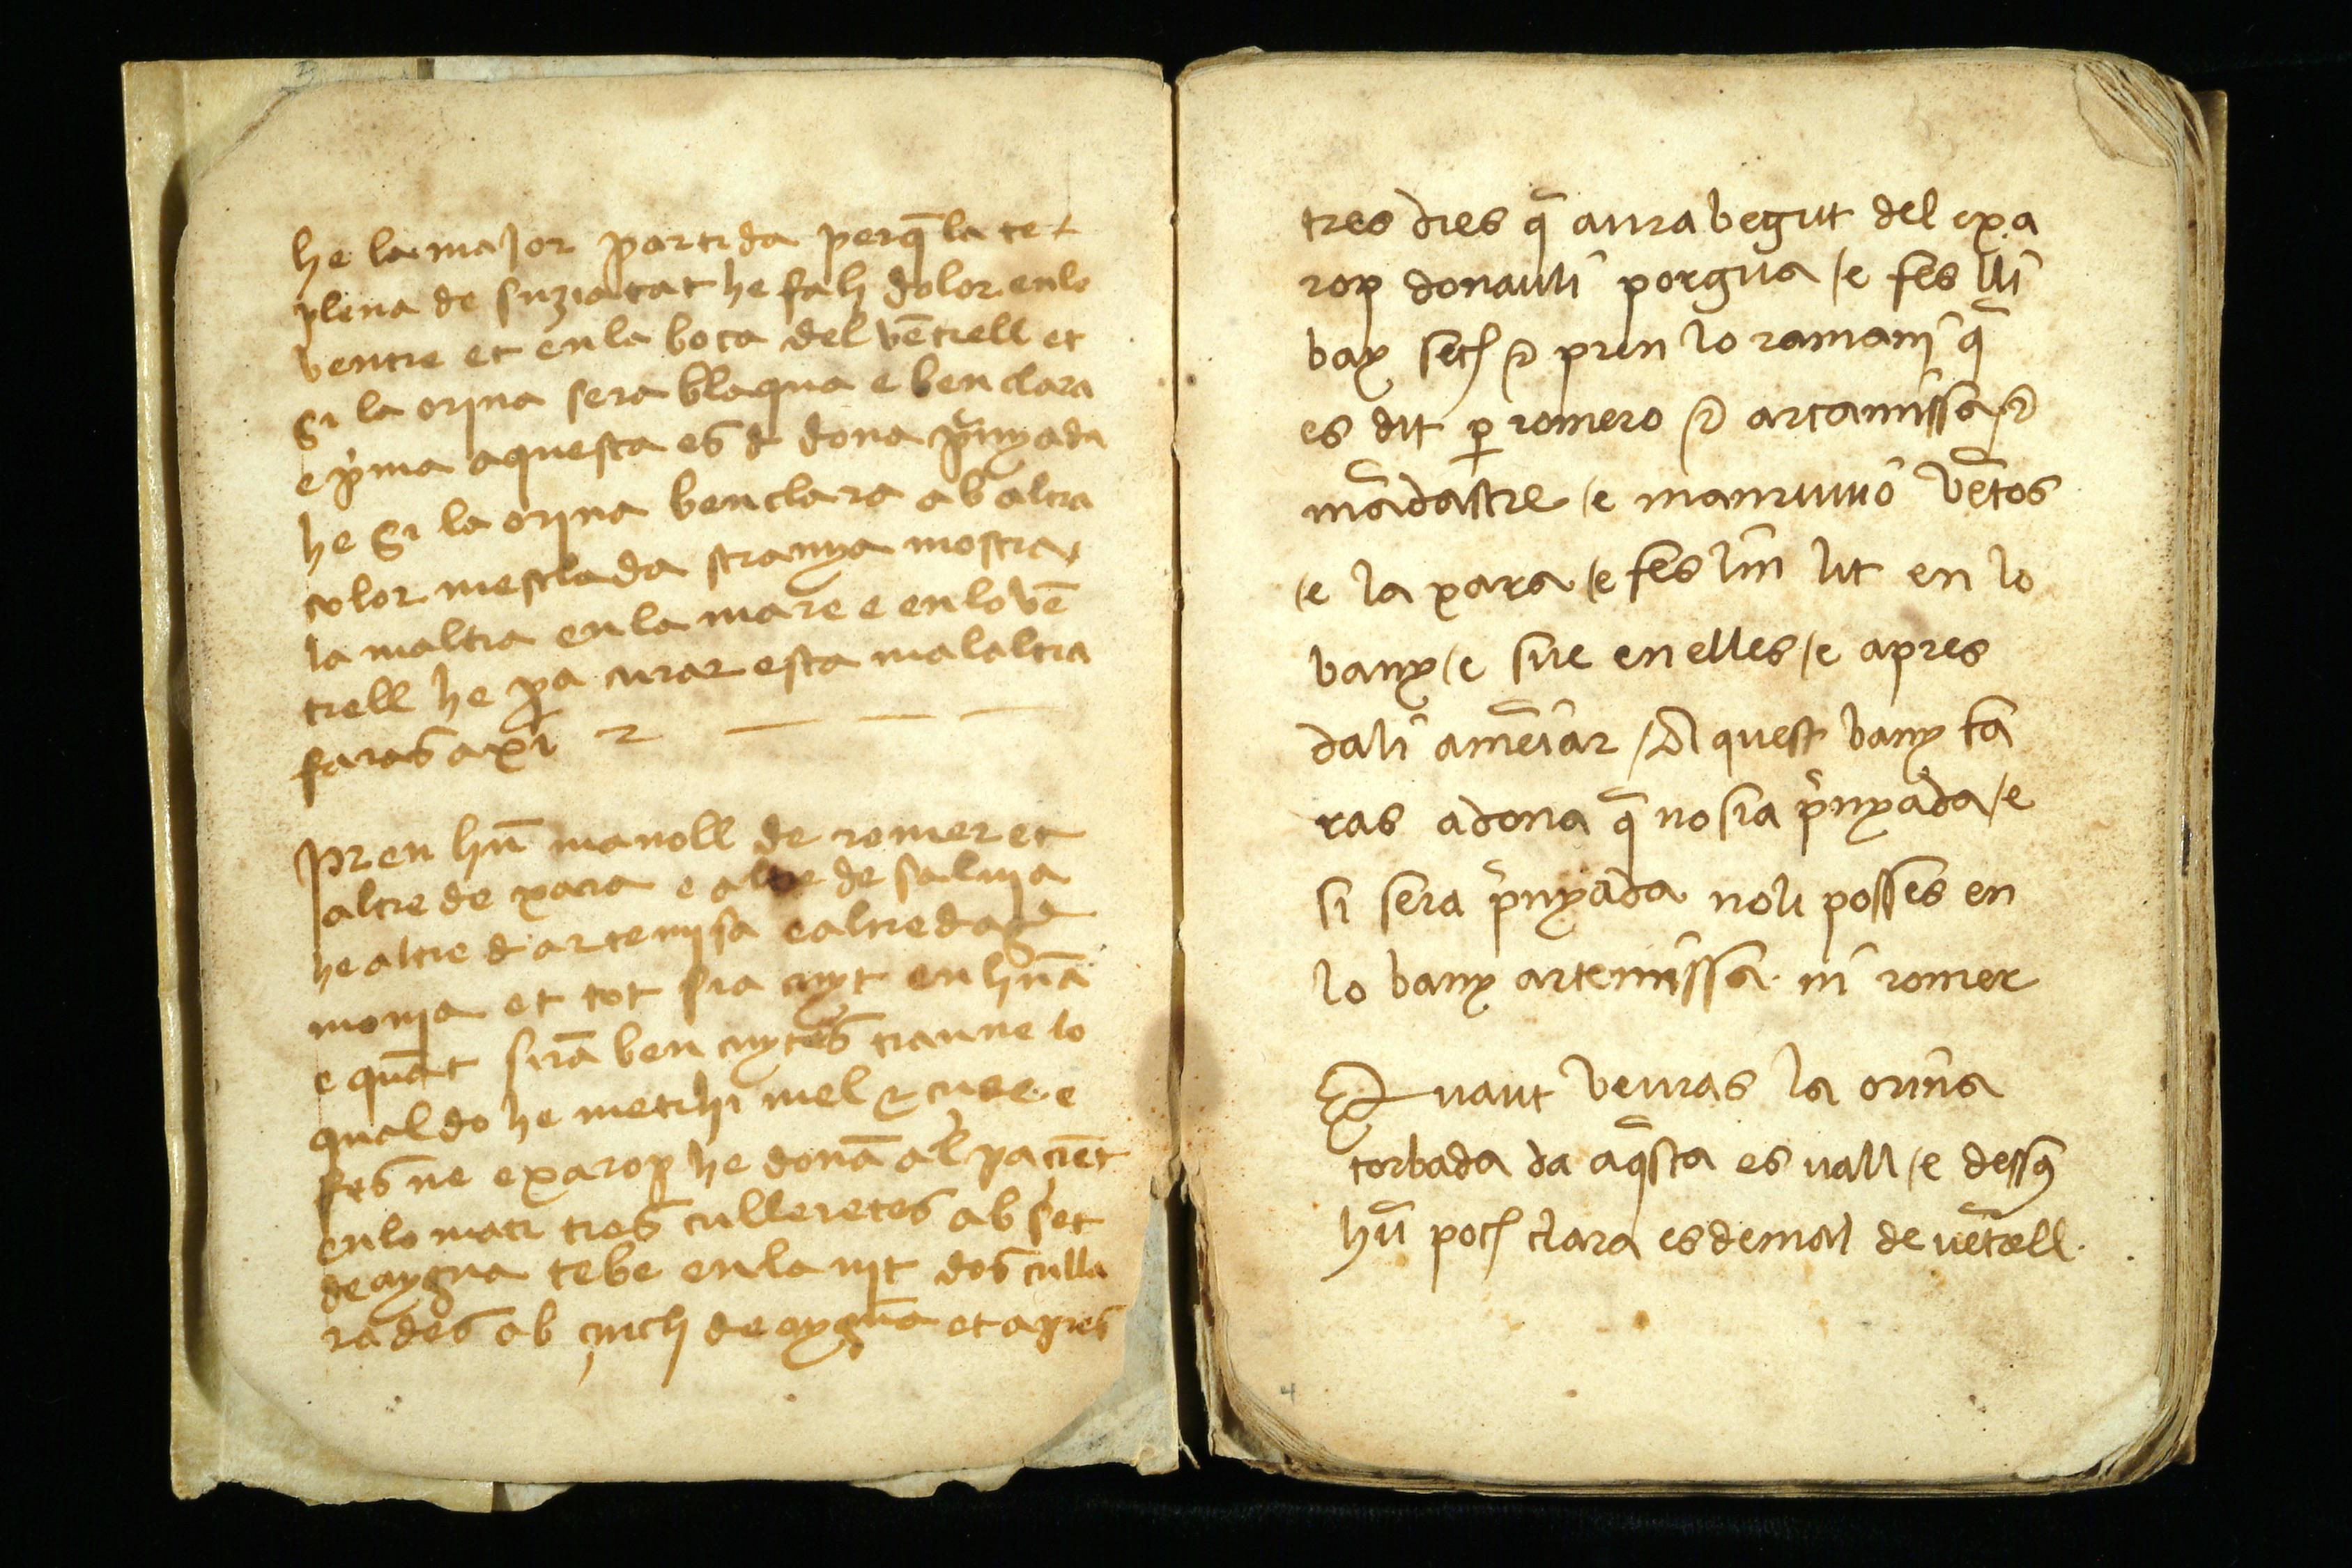 he la major partida perq̄ la te
plena de suziatat he fah dolor en lo
ventre et en la boca del vētrell et
si la orina sera blaqua e ben clara
e prima aquesta es d dona p̄nyada
he si la orina ben clara ab altra
color mesclada stranya mostra
la maltia en la mare e en lo vē
trell he ꝑa curar esta malaltia
faras axi
Pren hū manoll de romer et
altre de xara e altre de salvia
he altre d artemisa e altre dag
monia et tot sia cuyt en hūa
e quāt sirā ben cuytes traune lo
qual do he metihi mel & cure e
fes ne exarop he donā al paciēt
en lo mati tres culleretes ab set
de aygua tebe en la nit dos culla
rades ab cinch de aygua et apres
tres dies q̄ aura begut del exa
rop donauli porgua /e fes lli
bax sech & pren lo romani q̄
es dit ꝑ romero & artamissa &
mādastre /e manruuio vētos
/e la xara /e fes lin lit en lo
bany /e sue en elles /e apres
dali amēiar / Aquest bany fa
ras a dona q̄ no sia p̄nyada /e
si sera p̄nyada no li posses en
lo bany artemissa ni romer
Quant veuras la orina
torbada da aq̄sta es vall /e dessꝰ
hū poch clara es de mal de uētrell.
4